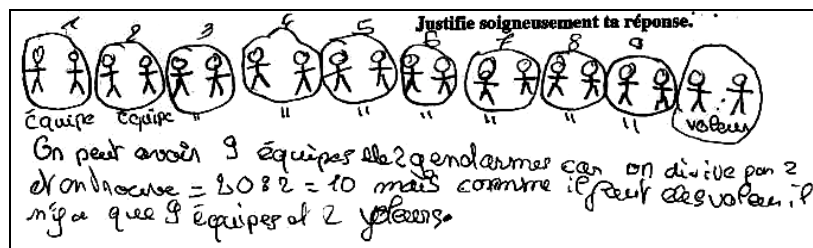 Justifie soigneusement ta réponse.
1 2 3 4 5 6 7 8 9
équipe équipe " " " " " " " voleur
On peut avoir 9 équipes de 2 gendarmes car on divive par 2
et on trouve = 20:2 = 10 mais comme il faut des voleur il
n'y a que 9 équipes et 2 voleurs.